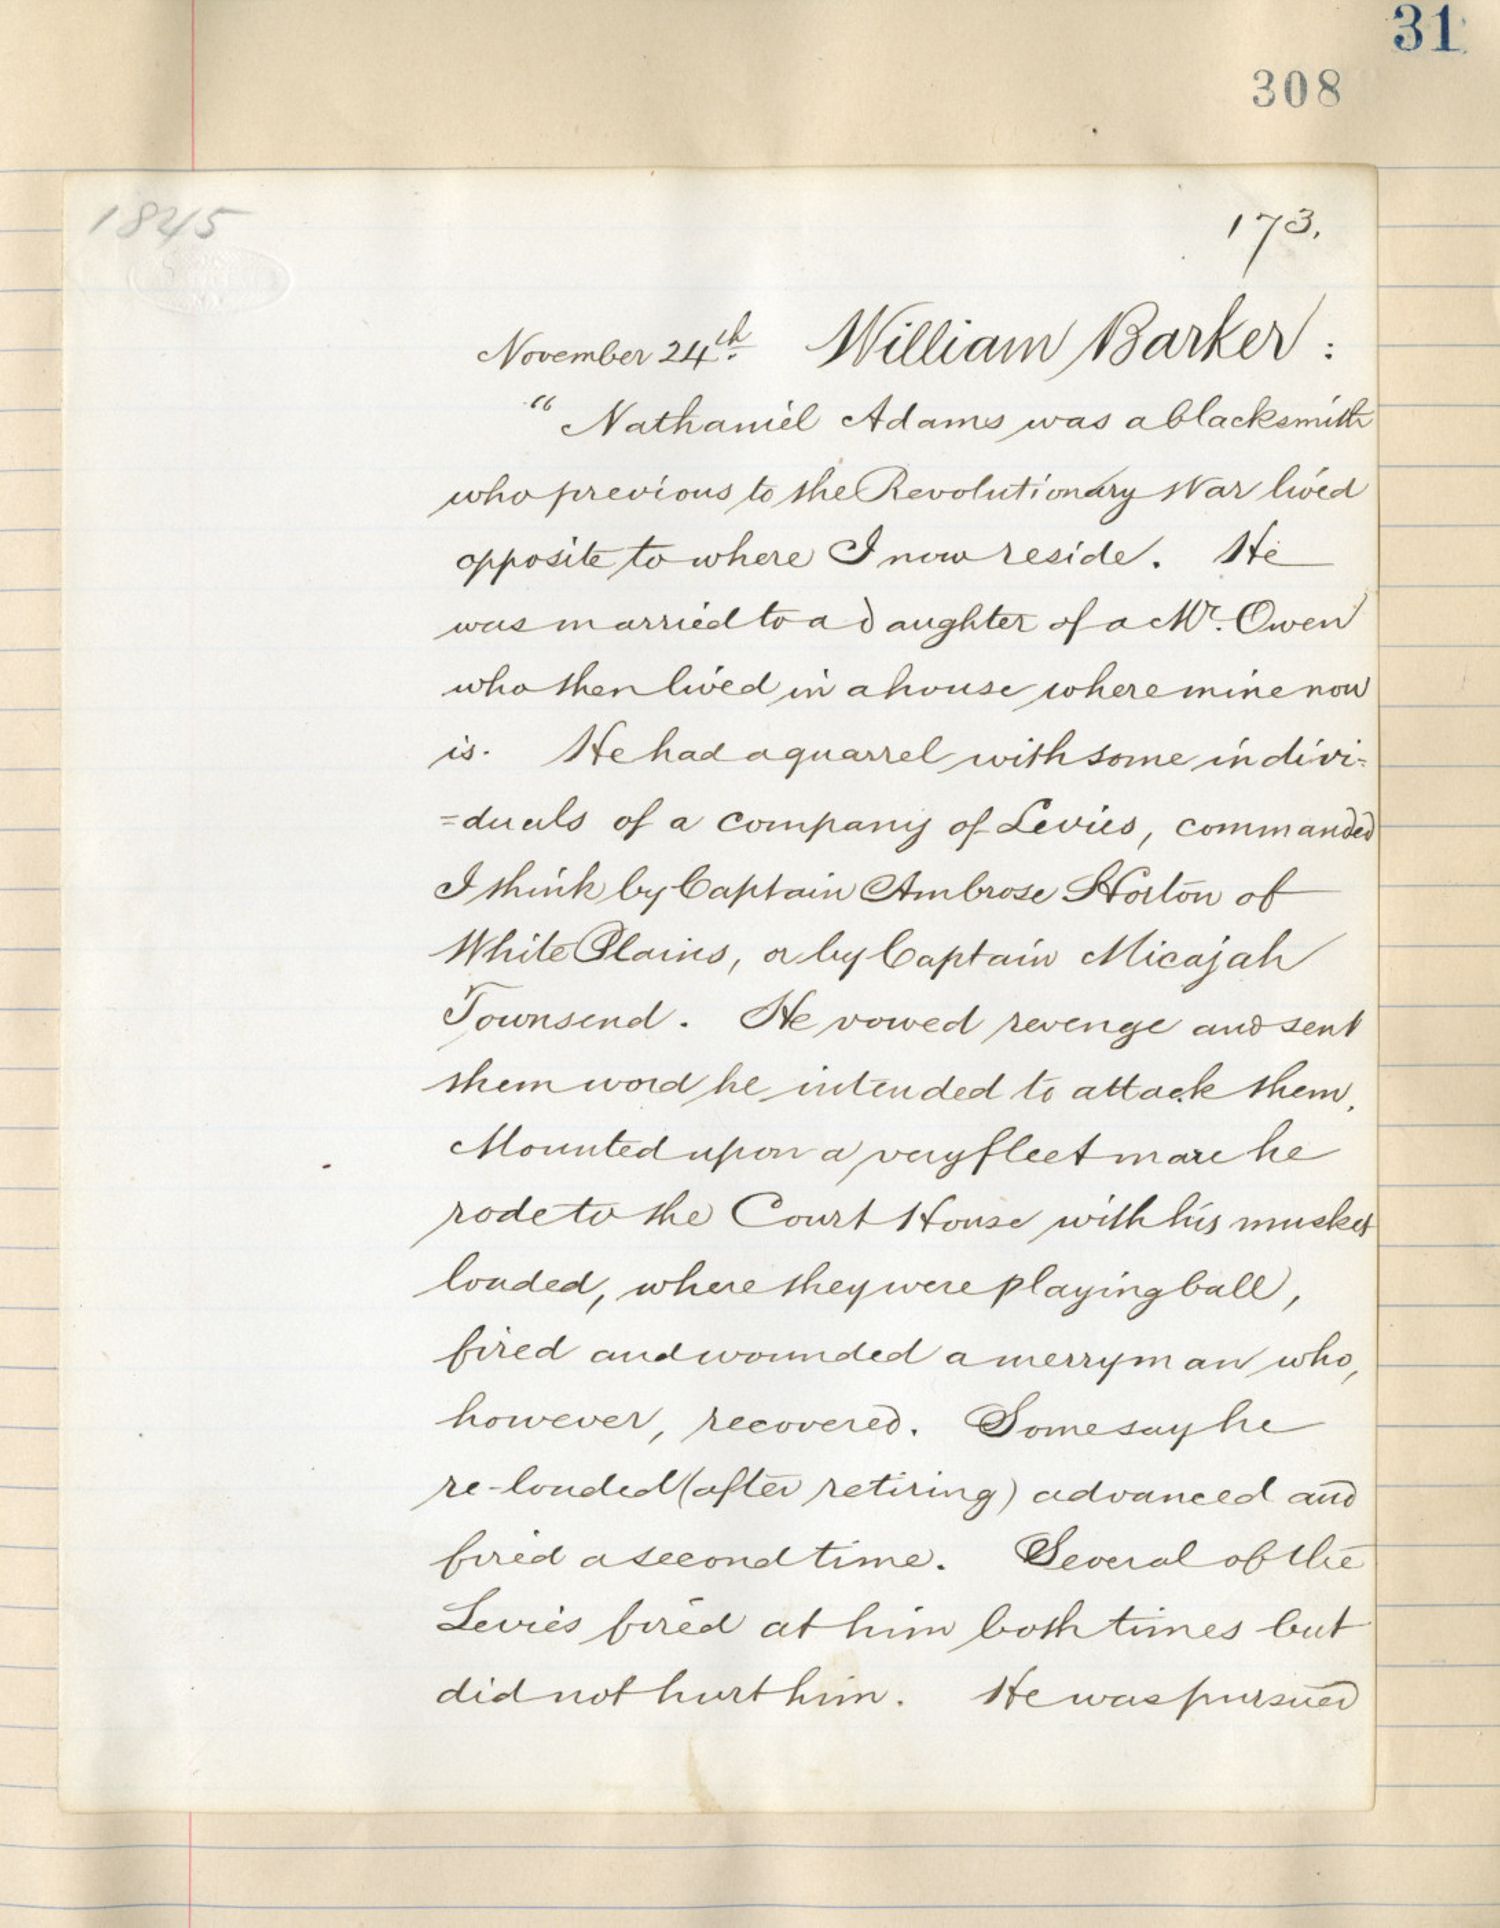 31
308
1845
173.
November 24th. William Barker:
" Nathaniel Adams was a blacksmith
who previous to the Revolutionary War lived
opposite to where I now reside. He
was married to a daughter of a Mr. Owen
who then lived in a house where mine now
is. He had a quarrel with some indivi=
=duals of a company of Levies, commanded
I think by Captain Ambrose Horton of
White Plains, or by Captain Micajah
Townsend. He vowed revenge and sent
them word he intended to attack them.
Mounted upon a very fleet mare he
rode to the Court House with his musket
loaded, where they were playing ball,
fired and wounded a merryman who,
however, recovered. Some say he
re-loaded (after retiring) advanced and
fired a second time. Several of the
Levies fired at him both times but
did not hurt him. He was pursued